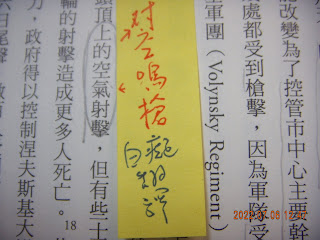 改變為了控管市中心主要幹
處都受到槍擊，因為軍隊受
軍團（Volynsky Regiment）
對空嗚槍
白癡翻譯
頭頂上的空氣射擊，但有些十
輪的射擊造成更多人死亡。18
力，政府得以控制涅夫斯基大
六日尾聲